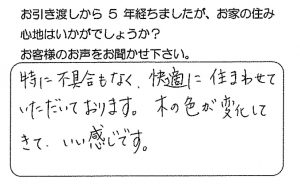 お引き渡しから 5 年経ちましたが、お家の住み
心地はいかがでしょうか?
お客様のお声をお聞かせ下さい。
特に不具合もなく、快適に住まわせて
いただいております。木の色が変化して
きて、いい感じです。